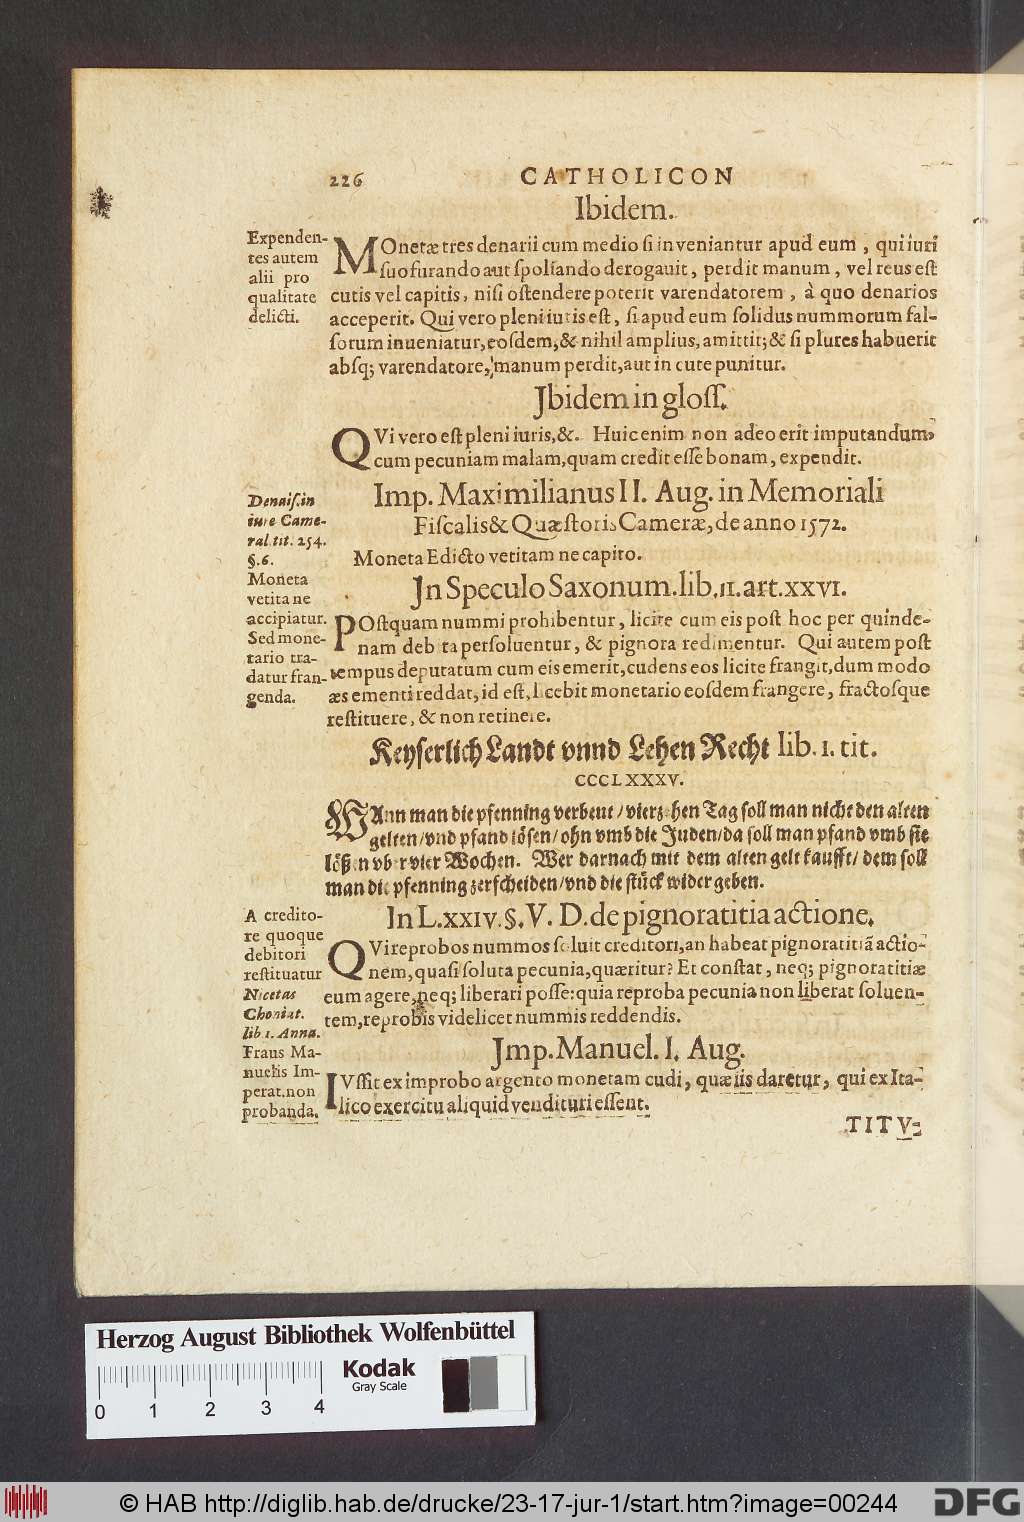 226 CATHOLICON
Ibidem.
Expenden-
tes autem
alii pro
qualitate
delicti.
MOnetæ tres denarii cum medio si inveniantur apud eum, qui iuri
suo furando aut spoliando derogauit, perdit manum, vel reus est
cutis vel capitis, nisi ostendere poterit varendatorem, à quo denarios
acceperit. Qui vero pleni iuris est, si apud eum solidus nummorum fal-
sorum inueniatur, eosdem, & nihil amplius, amittit; & si plures habuerit
absq; varendatore, manum perdit, aut in cute punitur.
Jbidem in gloss.
QVi vero est pleni iuris, &c. Huic enim non adeo erit imputandum,
cum pecuniam malam, quam credit esse bonam, expendit.
Imp. Maximilianus II. Aug. in Memoriali
Fiscalis & Quæstoris Cameræ, de anno 1572.
Denais. in
iure Came-
ral. tit. 254.
§. 6.
Moneta Edicto vetitam ne capito.
Moneta
vetita ne
accipiatur.
Sed mone-
tario tra-
datur fran-
genda.
Jn Speculo Saxonum. lib. II. art. XXVI.
POstquam nummi prohibentur, licite cum eis post hoc per quinde-
nam debita persoluentur, & pignora redimentur. Qui autem post
tempus deputatum cum eis emerit, cudens eos licite frangit, dum modo
æs ementi reddat, id est, licebit monetario eosdem frangere, fractosque
restituere, & non retinere.
Keyserlich Landt vnnd Lehen Recht lib. I. tit.
CCCLXXXV.
WAnn man die pfenning verbeut / vierzehen Tag soll man nicht den alten
gelten / vnd pfand lösen / ohn vmb die Juden / da soll man pfand vmb sie
lößen vber vier Wochen. Wer darnach mit dem alten gelt kaufft / dem soll
man die pfenning zerscheiden / vnd die stück wider geben.
In L. XXIV. §. V. D. de pignoratitia actione.
A credito-
re quoque
debitori
restituatur
QVi reprobos nummos soluit creditori, an habeat pignoratitiã actio-
nem, quasi soluta pecunia, quæritur? Et constat, neq; pignoratitiæ
eum agere, neq; liberari posse: quia reproba pecunia non liberat soluen-
tem, reprobis videlicet nummis reddendis.
Nicetas
Choniat.
lib. 1. Anna.
Fraus Ma-
nuelis Im-
perat. non
probanda.
Jmp. Manuel. I. Aug.
IVssit ex improbo argento monetam cudi, quæ iis daretur, qui ex Ita-
lico exercitu aliquid vendituri essent.
TITV-
Herzog August Bibliothek Wolfenbüttel
Kodak
Gray Scale
0 1 2 3 4
© HAB http://diglib.hab.de/drucke/23-17-jur-1/start.htm?image=00244
DFG